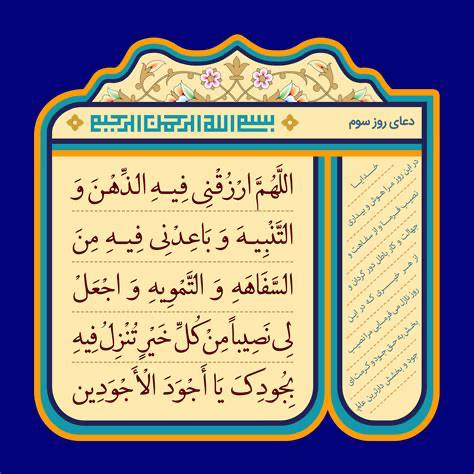 دعای روز سوم
بسم الله الرحمن الرحیم
اللَّهُمَّ ارْزُقْنِی فِیهِ الذِّهْنَ وَ
التَّنْبِیهَ وَ بَاعِدْنِی فِیهِ مِنَ
السَّفَاهَهِ وَ التَّمْوِیهِ وَ اجْعَلْ
لِی نَصِیباً مِن کُلِّ خَیْرٍ تُنْزِلُ فِیهِ
بِجُودِکَ یَا أَجْوَدَ الْأَجْوَدِین
خدایا
در این روز مرا هوش و بیداری
نصیب فرما و از سفاهت و
جهالت و کار باطل دور گردان و
از هر خیری که در این
روز نازل می فرمایی مرا نصیب
بخش به حق جود و کرمت ای
جود و بخشش دارترین عالم